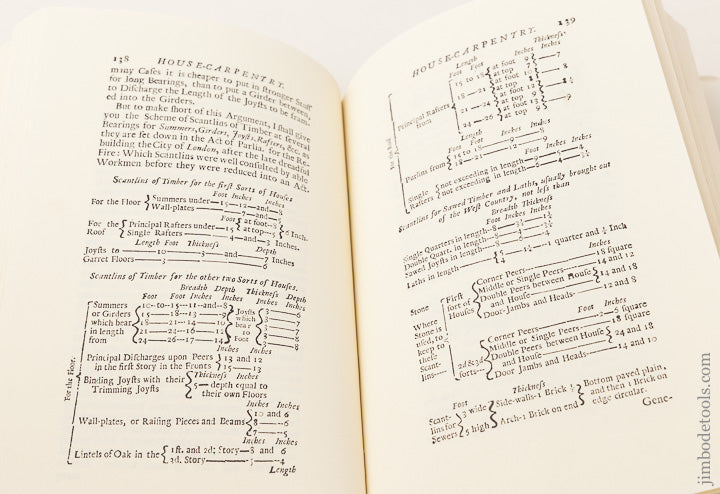 138
HOUSE-CARPENTRY.
many Cases it is cheaper to put in stronger Stuff
for long Bearings, than to put a Girder between,
to Discharge the Length of the Joysts to be fram'd
ed into the Girders.
But to make short of this Argument, I shall give
you the Scheme of Scantlins of Timber at several
Bearings for Summers, Girders, Joysts, Rafters, &c. as
they are set down in the Act of Parlia. for the Re-
building the City of London, after the late dreadful
Fire: Which Scantlins were well consulted by able
Workmen before they were reduced into an Act.
Scantlins of Timber for the first Sorts of Houses
Foot Inches Inches
For the Floor { Summers under—15—12—and—8
Wall-plates——7—and—5
Foot Inches
For the { Principal Rafters under—15 { at foot—8 } 6 Inch.
at top—5
Roof Single Rafters——4—and—3 Inches.
Length Foot Thickness Depth
Joysts to——10——3——and——7 Inches
Garret Floors——3——6
Scantlins of Timber for the other two Sorts of Houses.
Breadth Depth Thickness Depth
Foot Foot Inches Inches Inches Inches
Summers 10—to—15—11—and—8 Joysts 3——6
or Girders 15——18—13——9 which 3——7
which bear 18——21—14——10 bear 3——8
in length 21——24—16——12 10 3——8
from 24——26—17——14 Foot 3——8
For the Floor.
Principal Discharges upon Peers } 13 and 12
in the first Story in the Fronts } 15—13
Thickness Inches
Binding Joysts with their } 5—depth equal to
Trimming Joysts their own Floors
Inches Inches
Wall-plates, or Raising Pieces and Beams { 10 and 6
8——6
7——5
Inches Inches
Lintels of Oak in the { 1st. and 2d; Story—8 and 6
3d. Story——5——4
Length
139
HOUSE-CARPENTRY.
Thickness
Length Inches Inches
Foot Foot
For the Roof
Principal Rafters from
15 to 18 { at foot 9 } —7
at top 7
18—21 { at foot 10 } —8
at top 8
21—24 { at foot 12 } —8½
at top 9
24—26 { at foot 13 } —9
at top 9
Length
Foot Foot Inches Inches
Purlins from { 15 to 18——9——8
18—21——12——9
Foot Inches Inches
Single { not exceeding in length—9
Rafters { not exceeding in length—
Scantlins for Sawed Timber and Laths, usually brought out
of the West Country, not less than
Breadth Thickness
Foot Inches Inches
Single Quarters in length—8
Double Quart. in length—8
Sawed Joysts in length—8
Laths in length 5 1 quarter and ¼ Inch
4
Inches
Stone { First sort of Houses { Corner Peers——18 square
Middle or Single Peers——14 and 12
Double Peers between House } 14 and 18
and House
Door-Jambs and Heads——12 and 8
Where Stone is used, to keep to these Scantlins
Foot Inches
2d & 3d sorts— { Corner Peers——2—5 square
Middle or Single Peers——18 square
Double Peers between House } 24 and 18
and House
Door Jambs and Heads——14 and 10
Foot Thickness
Scantlins for Sewers { 3 wide { Side-walls-1 Brick ½ } Bottom paved plain,
5 high { Arch-1 Brick on end } and then 1 Brick on
edge circular.
Gene-
jimbodetools.com